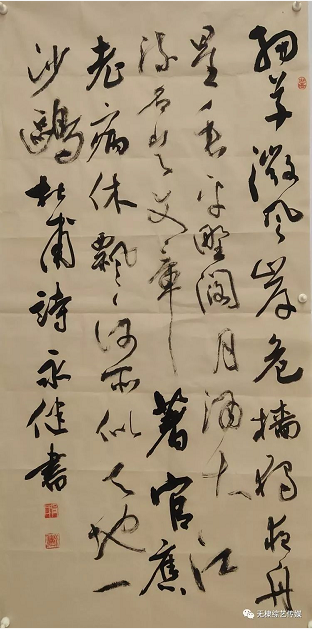 細草微風岸危檣獨夜舟
星垂平野闊月涌大江
流名豈文章著官應
老病休飄々何所似天地一
沙鷗杜甫詩永書
无棣综艺传媒